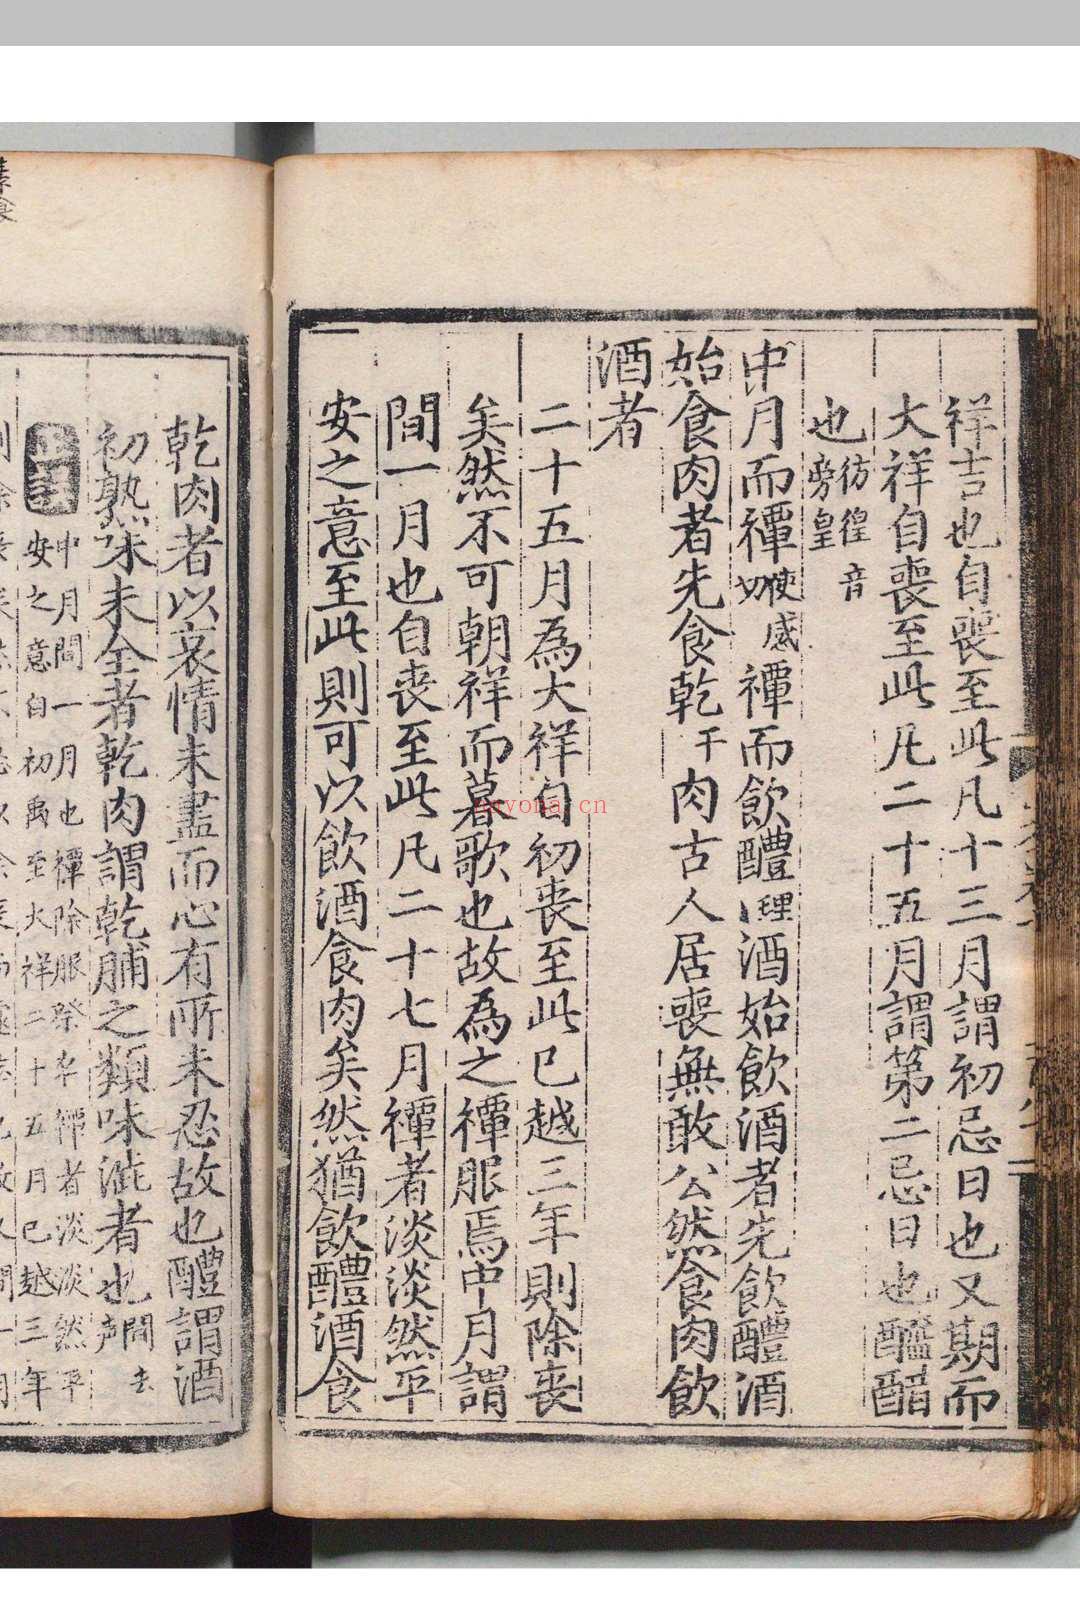 祥吉也自喪至此凡十三月謂初忌日也又期而
大祥自喪至此凡二十五月謂第二忌日也醯醋
也彷徨音
旁皇
中月而禫使感
切禫而飲醴理酒始飲酒者先飲醴酒
始食肉者先食乾干肉古人居喪無敢公然食肉飲
酒者
二十五月為大祥自初喪至此已越三年則除喪
矣然不可朝祥而暮歌也故為之禫服焉中月謂
間一月也自喪至此凡二十七月禫者淡淡然平
安之意至此則可以飲酒食肉矣然猶飲醴酒食
乾肉者以哀情未盡而心有所未忍故也醴謂酒
初熟味未全者乾肉謂乾脯之類味澁者也間去
声
中月間一月也禫除服祭名禫者淡淡然平
安之意自初喪至大祥二十五月已越三年
nuyona.cn